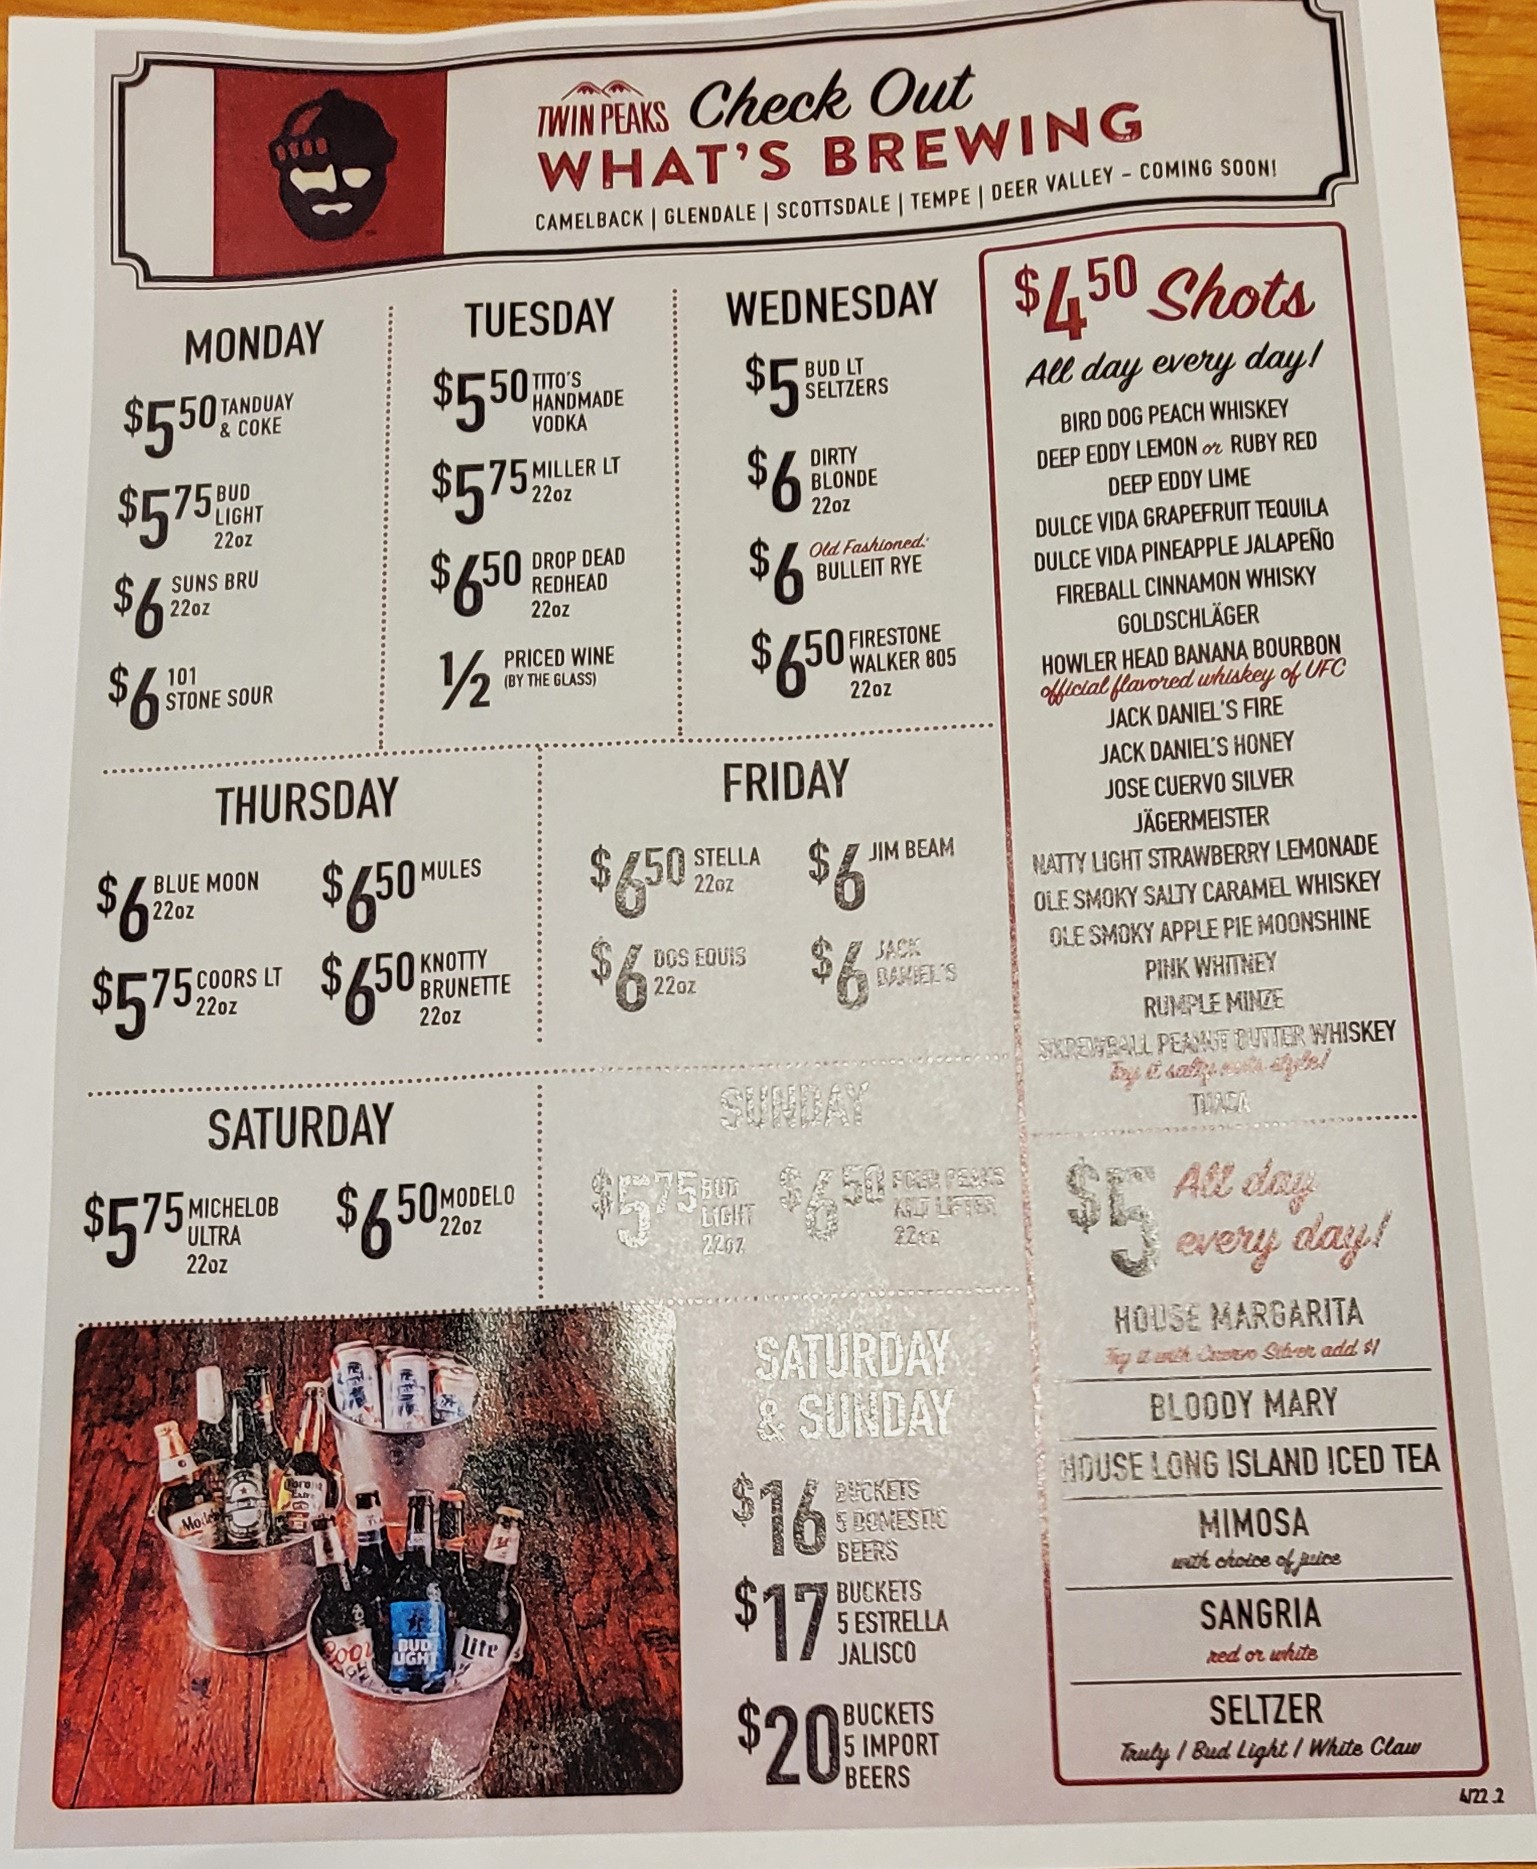 TWIN PEAKS Check Out
WHAT'S BREWING
CAMELBACK | GLENDALE | SCOTTSDALE | TEMPE | DEER VALLEY – COMING SOON!
MONDAY
$5 50 TANDUAY
& COKE
$5 75 BUD
LIGHT
22oz
$6 SUNS BRU
22oz
$6 101
STONE SOUR
TUESDAY
$5 50 TITO'S
HANDMADE
VODKA
$5 75 MILLER LT
22oz
$6 50 DROP DEAD
REDHEAD
22oz
1/2 PRICED WINE
(BY THE GLASS)
WEDNESDAY
$5 BUD LT
SELTZERS
$6 DIRTY
BLONDE
22oz
$6 Old Fashioned:
BULLEIT RYE
$6 50 FIRESTONE
WALKER 805
22oz
THURSDAY
$6 BLUE MOON
22oz
$6 50 MULES
$5 75 COORS LT
22oz
$6 50 KNOTTY
BRUNETTE
22oz
FRIDAY
$6 50 STELLA
22oz
$6 JIM BEAM
$6 DOS EQUIS
22oz
$6 JACK
DANIEL'S
SATURDAY
$5 75 MICHELOB
ULTRA
22oz
$6 50 MODELO
22oz
SUNDAY
$5 75 BUD
LIGHT
22oz
$6 50 FOUR PEAKS
KILT LIFTER
22oz
SATURDAY
& SUNDAY
$16 BUCKETS
5 DOMESTIC
BEERS
$17 BUCKETS
5 ESTRELLA
JALISCO
$20 BUCKETS
5 IMPORT
BEERS
$4 50 Shots
All day every day!
BIRD DOG PEACH WHISKEY
DEEP EDDY LEMON or RUBY RED
DEEP EDDY LIME
DULCE VIDA GRAPEFRUIT TEQUILA
DULCE VIDA PINEAPPLE JALAPEÑO
FIREBALL CINNAMON WHISKY
GOLDSCHLÄGER
HOWLER HEAD BANANA BOURBON
official flavored whiskey of UFC
JACK DANIEL'S FIRE
JACK DANIEL'S HONEY
JOSE CUERVO SILVER
JÄGERMEISTER
NATTY LIGHT STRAWBERRY LEMONADE
OLE SMOKY SALTY CARAMEL WHISKEY
OLE SMOKY APPLE PIE MOONSHINE
PINK WHITNEY
RUMPLE MINZE
SKREWBALL PEANUT BUTTER WHISKEY
Try it salty nuts style!
TUACA
$5 All day
every day!
HOUSE MARGARITA
Try it with Cuervo Silver add $1
BLOODY MARY
HOUSE LONG ISLAND ICED TEA
MIMOSA
with choice of juice
SANGRIA
red or white
SELTZER
Truly / Bud Light / White Claw
4/22 .2
Corona
Extra
BUD
LIGHT
Lite